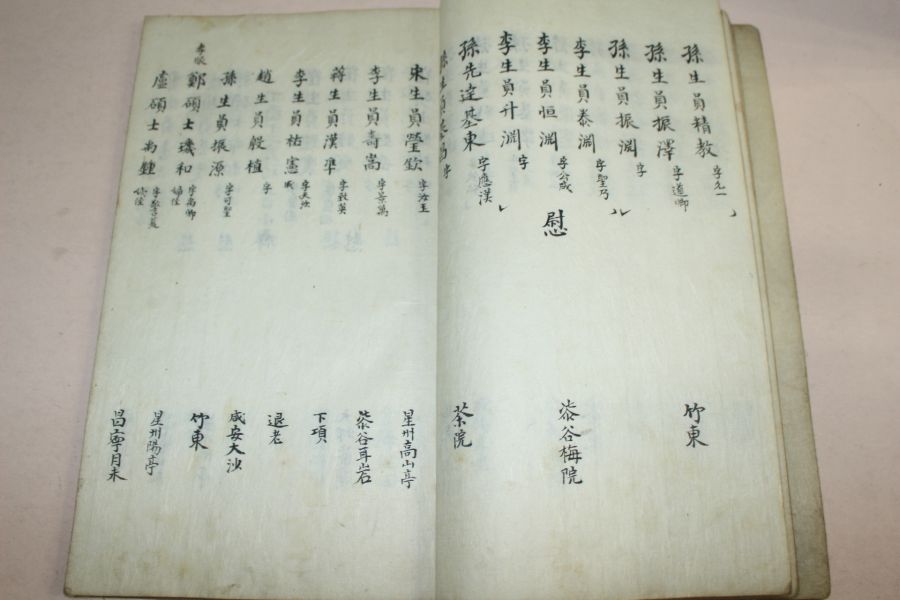 孫生員精教 字允一
孫生員振澤 字道卿
孫生員振淵 字
李生員泰淵 字聖乃
李生員恒淵 字公彧
李生員升淵 字
孫先達基東 字應漢
慰
竹東
漆谷梅院
茶院
宋生員瑩欽 字汝玉
李生員壽嵩 字景萬
蔣生員漢準 字敬英
李生員祐憲
趙生員毅植 字
孫生員振源 字司聖
鄭碩士璣和 字尚卿
盧碩士尚鍾
星州高山亭
漆谷耳岩
下項
退老
咸安大沙
竹東
星州陽亭
昌寧月未